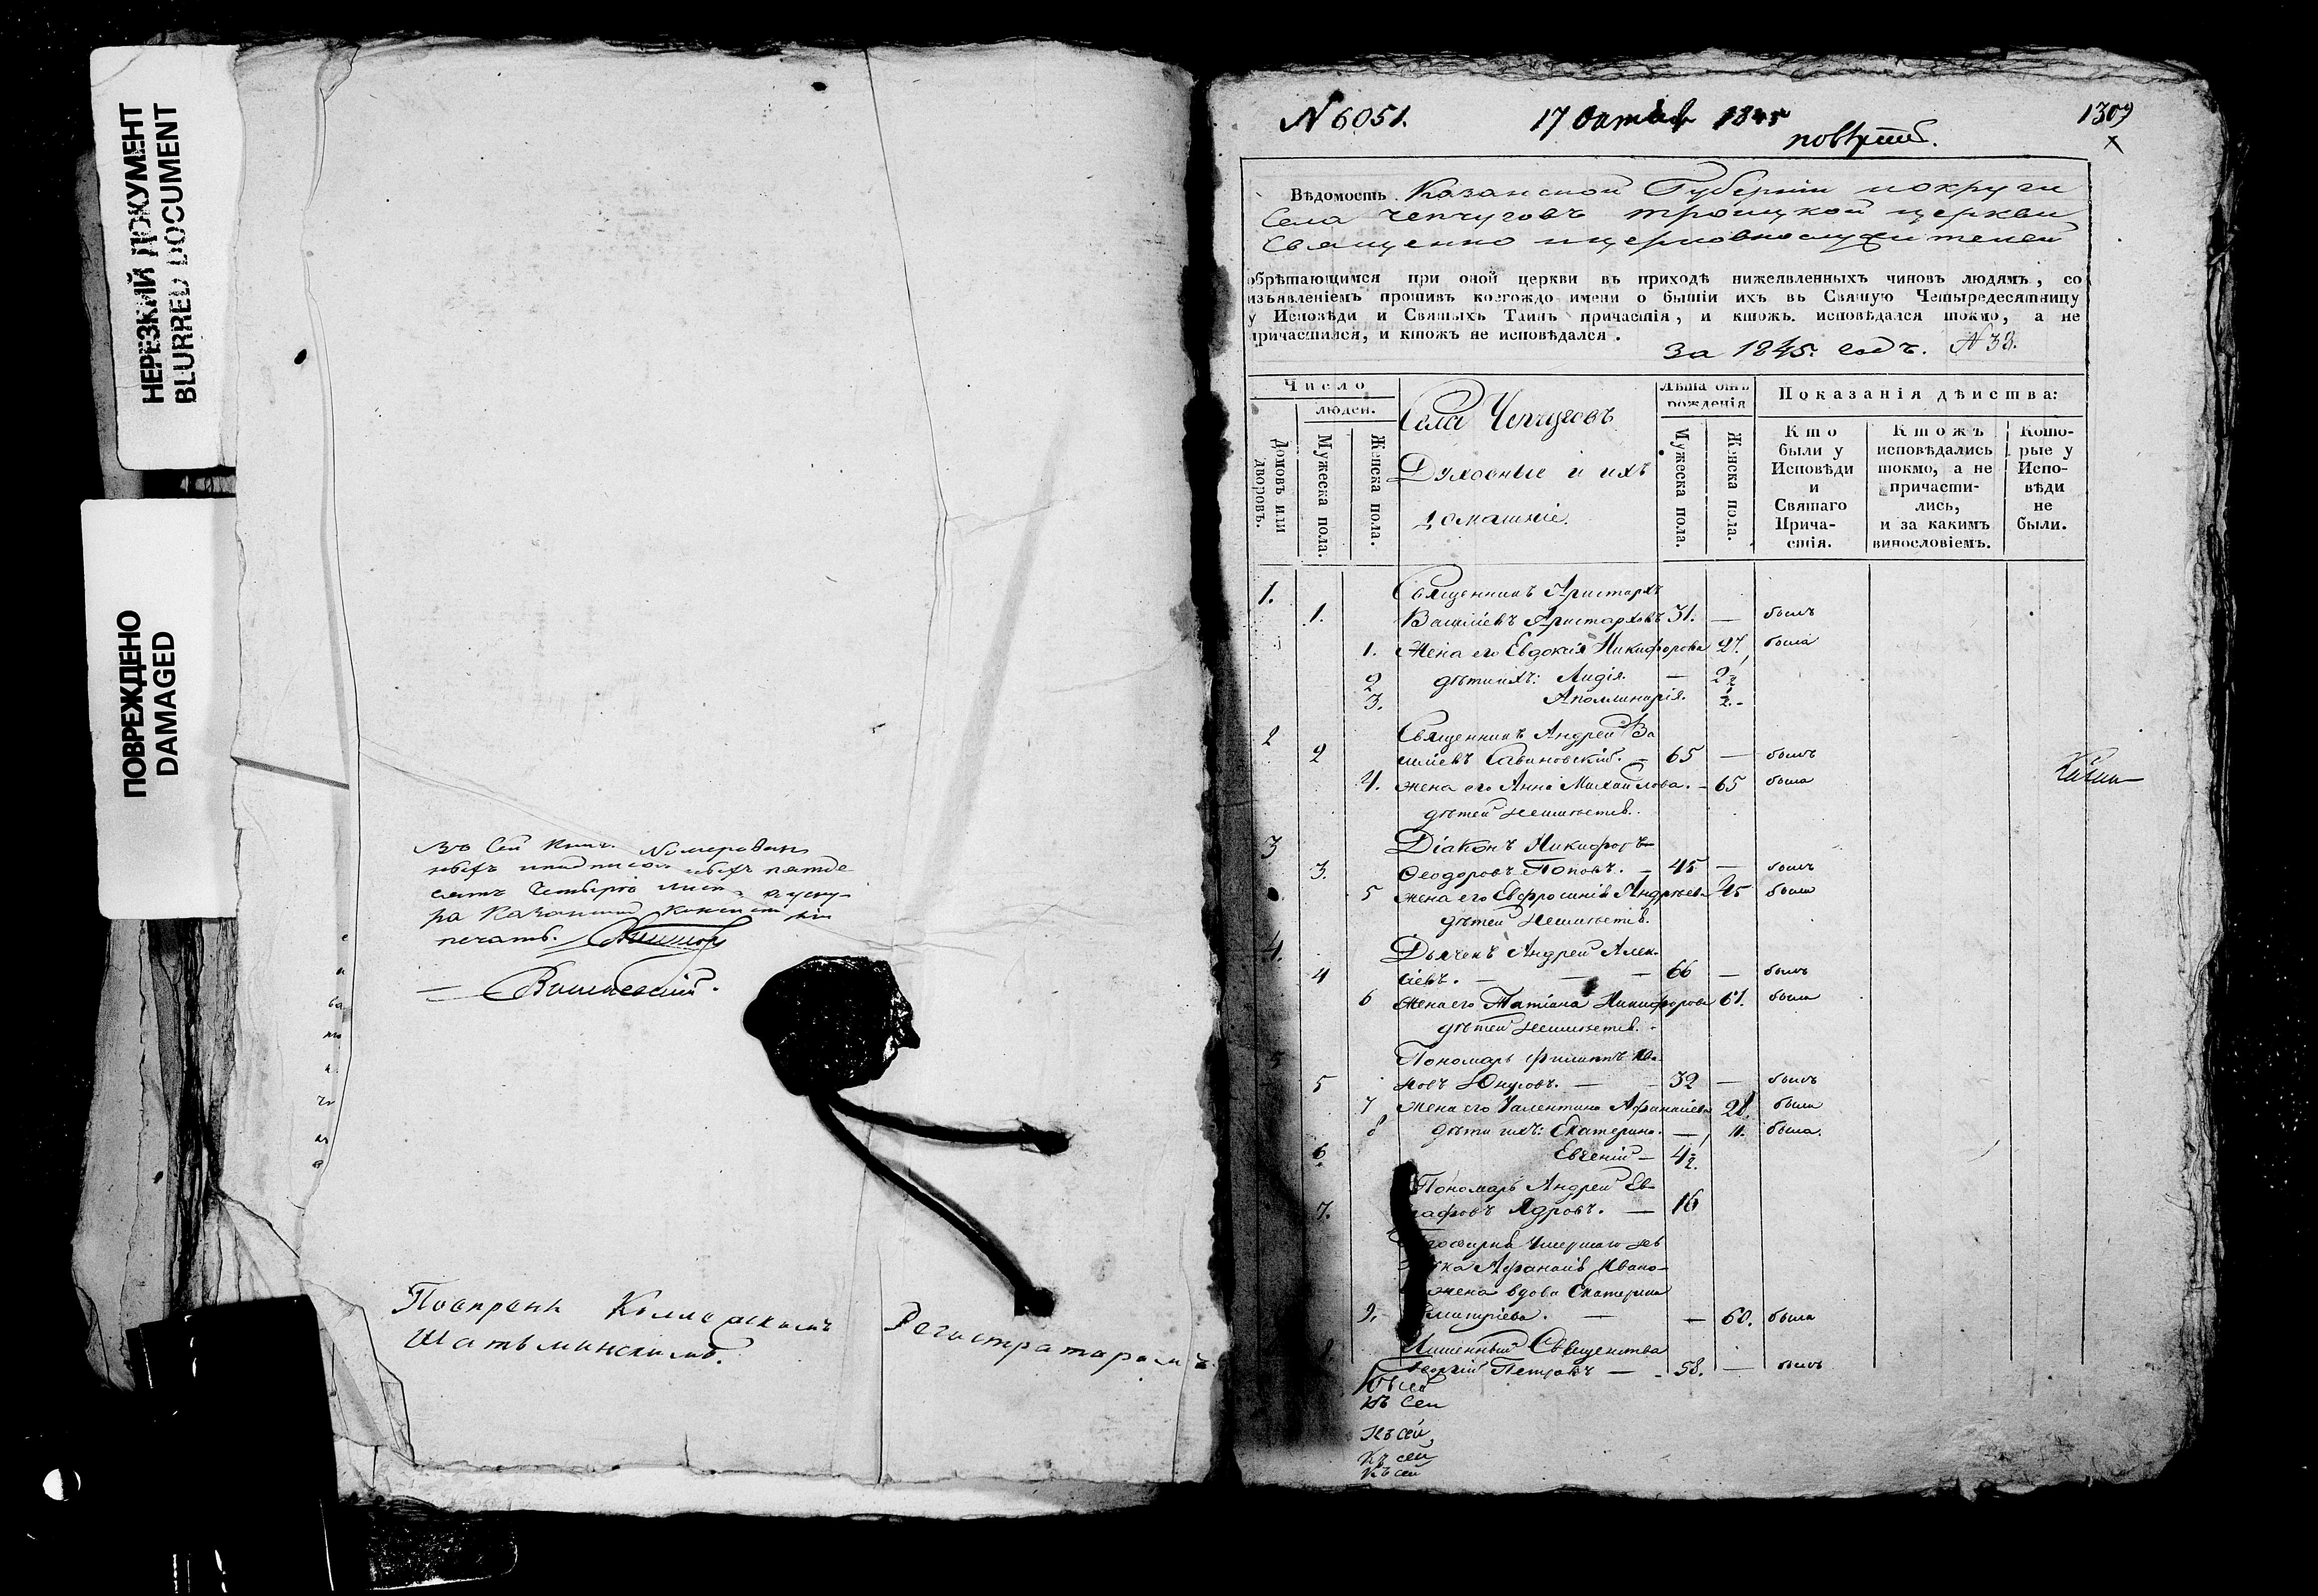 НЕРЕЗКИЙ ДОКУМЕНТ
BLURRED DOCUMENT
ПОВРЕЖДЕНО
DAMAGED
Въ сей книг. Номерован
ныхъ и подписан ныхъ пятде
сятъ четыре лист
ра Казанской Консист ріи
печать.
Вишневскій.
Повѣрены Коллежскимъ Регистраторомъ
Шатьминскимъ.
N 6051. 17 Октяб 1845 1309
повѣрить.
Вѣдомость Казанской Губерніи и округи
Села Чепчуговъ Троицкой церкви
Священно и церковнослужителей
обрѣтающимся при оной церкви въ приходѣ нижеявленныхъ чиновъ людямъ, со
изъявленіемъ противъ коегождо имени о бытіи ихъ въ Святую Четыредесятницу
у Исповѣди и Святыхъ Таинъ причастія, и ктожъ исповѣдался токмо, а не
причастился, и ктожъ не исповѣдался.
За 1845. годъ. N 33.
Число
людей.
Домовъ или дворовъ.
Мужеска пола.
Женска пола.
Села Чепчуговъ
Духовные и ихъ
домашніе.
Лѣта отъ рожденія
Мужеска пола.
Женска пола.
Показанія дѣйства:
Кто были у Исповѣди и Святаго Причастія.
Ктожъ исповѣдались токмо, а не причастились, и за какимъ винословіемъ.
Которые у Исповѣди не были.
1. Священникъ Аристархъ
1. Васильевъ Аристарховъ 31. — былъ
1. Жена его Евдокія Никифорова 27. была
2 дѣти ихъ: Лидія. — 2 1/2
3. Аполлинарія. 1/2. -
2 Священникъ Андрей Ва
2 сильевъ Савиновскій. — 65 — былъ
4. жена его Анна Михайлова. - 65 была
дѣтей неимѣетъ.
3 Діаконъ Никифоръ
3. Ѳеодоровъ Поповъ. — 45 — былъ
5 жена его Евфросинія Андреева 45 была
дѣтей неимѣетъ.
4. Дьячекъ Андрей Алек-
4 сіевъ. — — — 66 — былъ
6 Жена его Татіана Никифорова 61. была
дѣтей неимѣетъ.
5 Пономарь Филиппъ Ива
5 новъ Юнусовъ. — - 32 — былъ
7 Жена его Валентина Афанасьева 28. была
8 дѣти ихъ: Екатерина. — 11. была.
6. Евгеній — 4 1/2.
Пономарь Андрей Ев-
7. графовъ Ядровъ. — 16
умершаго
Афанасія Ивано-
жена вдова Екатерина
9. Дмитріева. — — 60. была
8 Лишенный Священства
Георгій Петровъ — - 58. — былъ
Къ сей
Къ сей
Къ сей
Къ сей